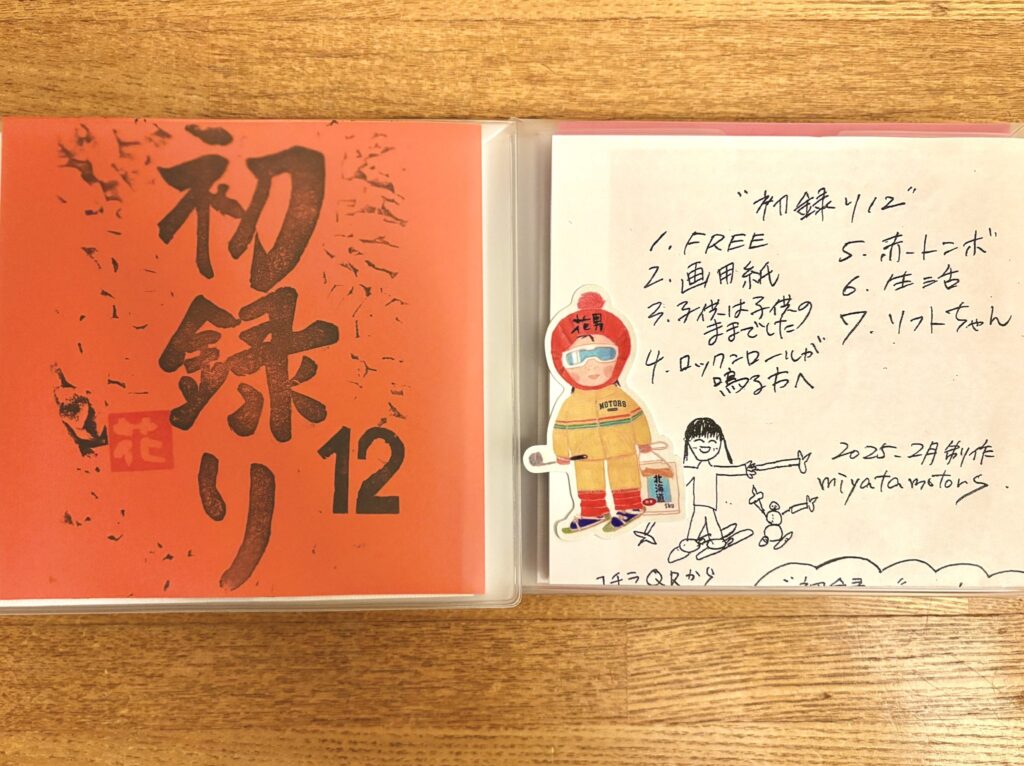 初録り
12
花
"初録り12"
1. FREE
2. 画用紙
3. 子供は子供の
ままでした
4. ロックンロールが
鳴る方へ
5. 赤トンボ
6. 生活
7. リフトちゃん
花男
MOTORS
北海道
5kg
2025.2月制作
miyatamotors.
コチラQRから